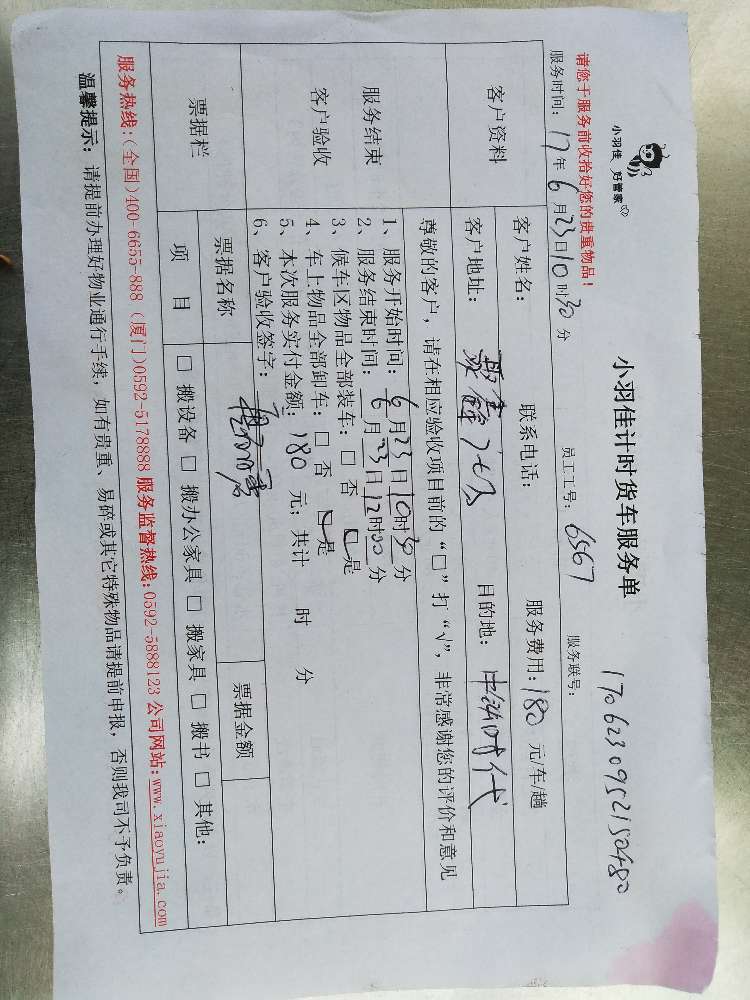 小羽佳 好管家
小羽佳计时货车服务单
1706230952150480
请您于服务前收拾好您的贵重物品！
服务时间：17年6月23日10时30分 员工工号：6567 服务联号：
客户资料
客户姓名： 联系电话： 服务费用：180元/车/趟
客户地址： 目的地：中涵时代
服务结束
客户验收
尊敬的客户，请在相应验收项目前的“□”打“√”，非常感谢您的评价和意见
1、服务开始时间：6月23日10时30分
2、服务结束时间：6月23日12时30分
3、候车区物品全部装车：□ 否 是
4、车上物品全部卸车：□ 否 是
5、本次服务实付金额：180元；共计 时 分
6、客户验收签字：
票据栏
票据名称 票据金额
项 目 □ 搬设备 □ 搬办公家具 □ 搬家具 □ 搬书 □ 其他：
服务热线：(全国)400-6655-888 (厦门)0592-5178888 服务监督热线：0592-5888123 公司网站：www.xiaoyujia.com
温馨提示：请提前办理好物业通行手续，如有贵重、易碎或其它特殊物品请提前申报，否则我司不予负责。